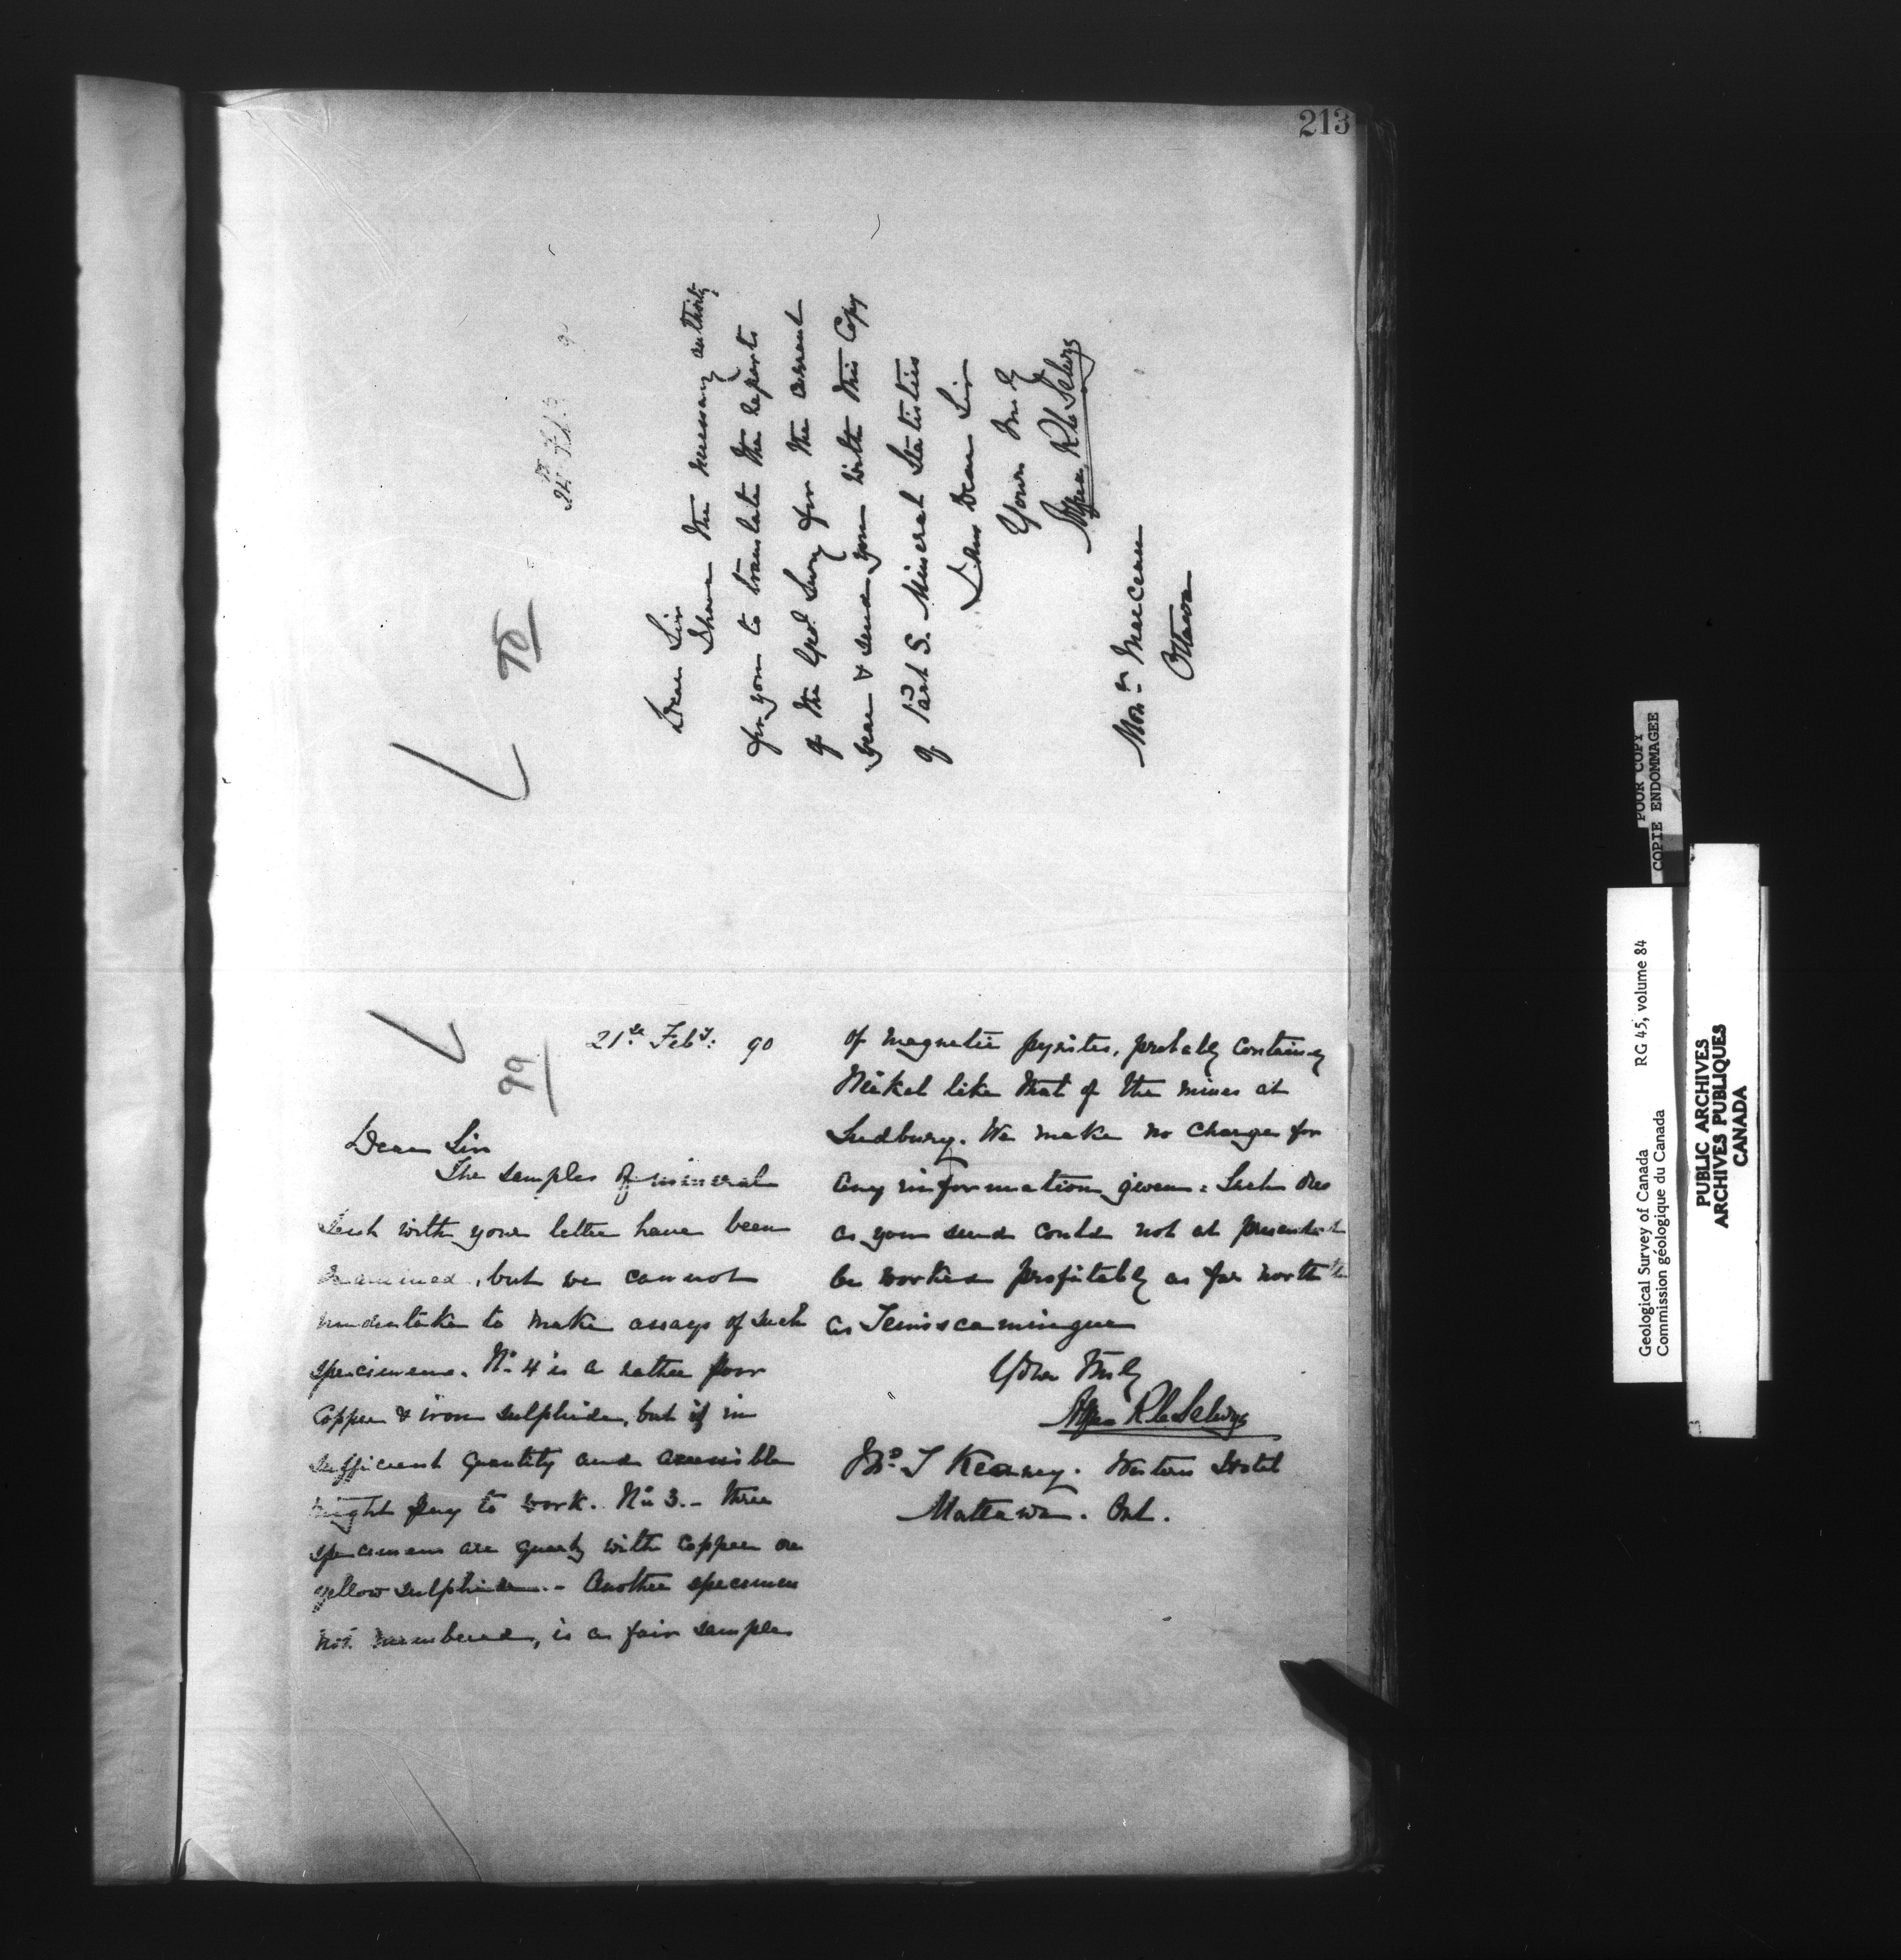 213
24th Feb. 90
98
Dear Sir
I have the necessary authority
for you to translate the Reports
of the Geol. Survey for the current
year & send you with this Copy
of Part S. Mineral Statistics
I am Dear Sir
Yours truly
Alfred R C Selwyn
Monsr Marceau
Ottawa
21st Feby: 90
99
Dear Sir
The samples of mineral
sent with your letter have been
examined, but we cannot
undertake to make assays of such
specimens. No. 4 is a rather poor
copper & iron sulphide, but if in
sufficient quantity and accessible
might pay to work. No 3. - three
specimens are quartz with copper ore
yellow sulphide. - Another specimen
not numbered, is a fair sample
of magnetic pyrites, probably containing
Nickel like that of the mines at
Sudbury. We make no charge for
any information given. Such ores
as you send could not at present
be worked profitably as far north
as Temiscamingue
Yours truly
Alfred R C Selwyn
Jno. T Kearney. Western Hotel
Mattawa. Ont.
POOR COPY
COPIE ENDOMMAGEE
Geological Survey of Canada RG 45, volume 84
Commission géologique du Canada
PUBLIC ARCHIVES
ARCHIVES PUBLIQUES
CANADA